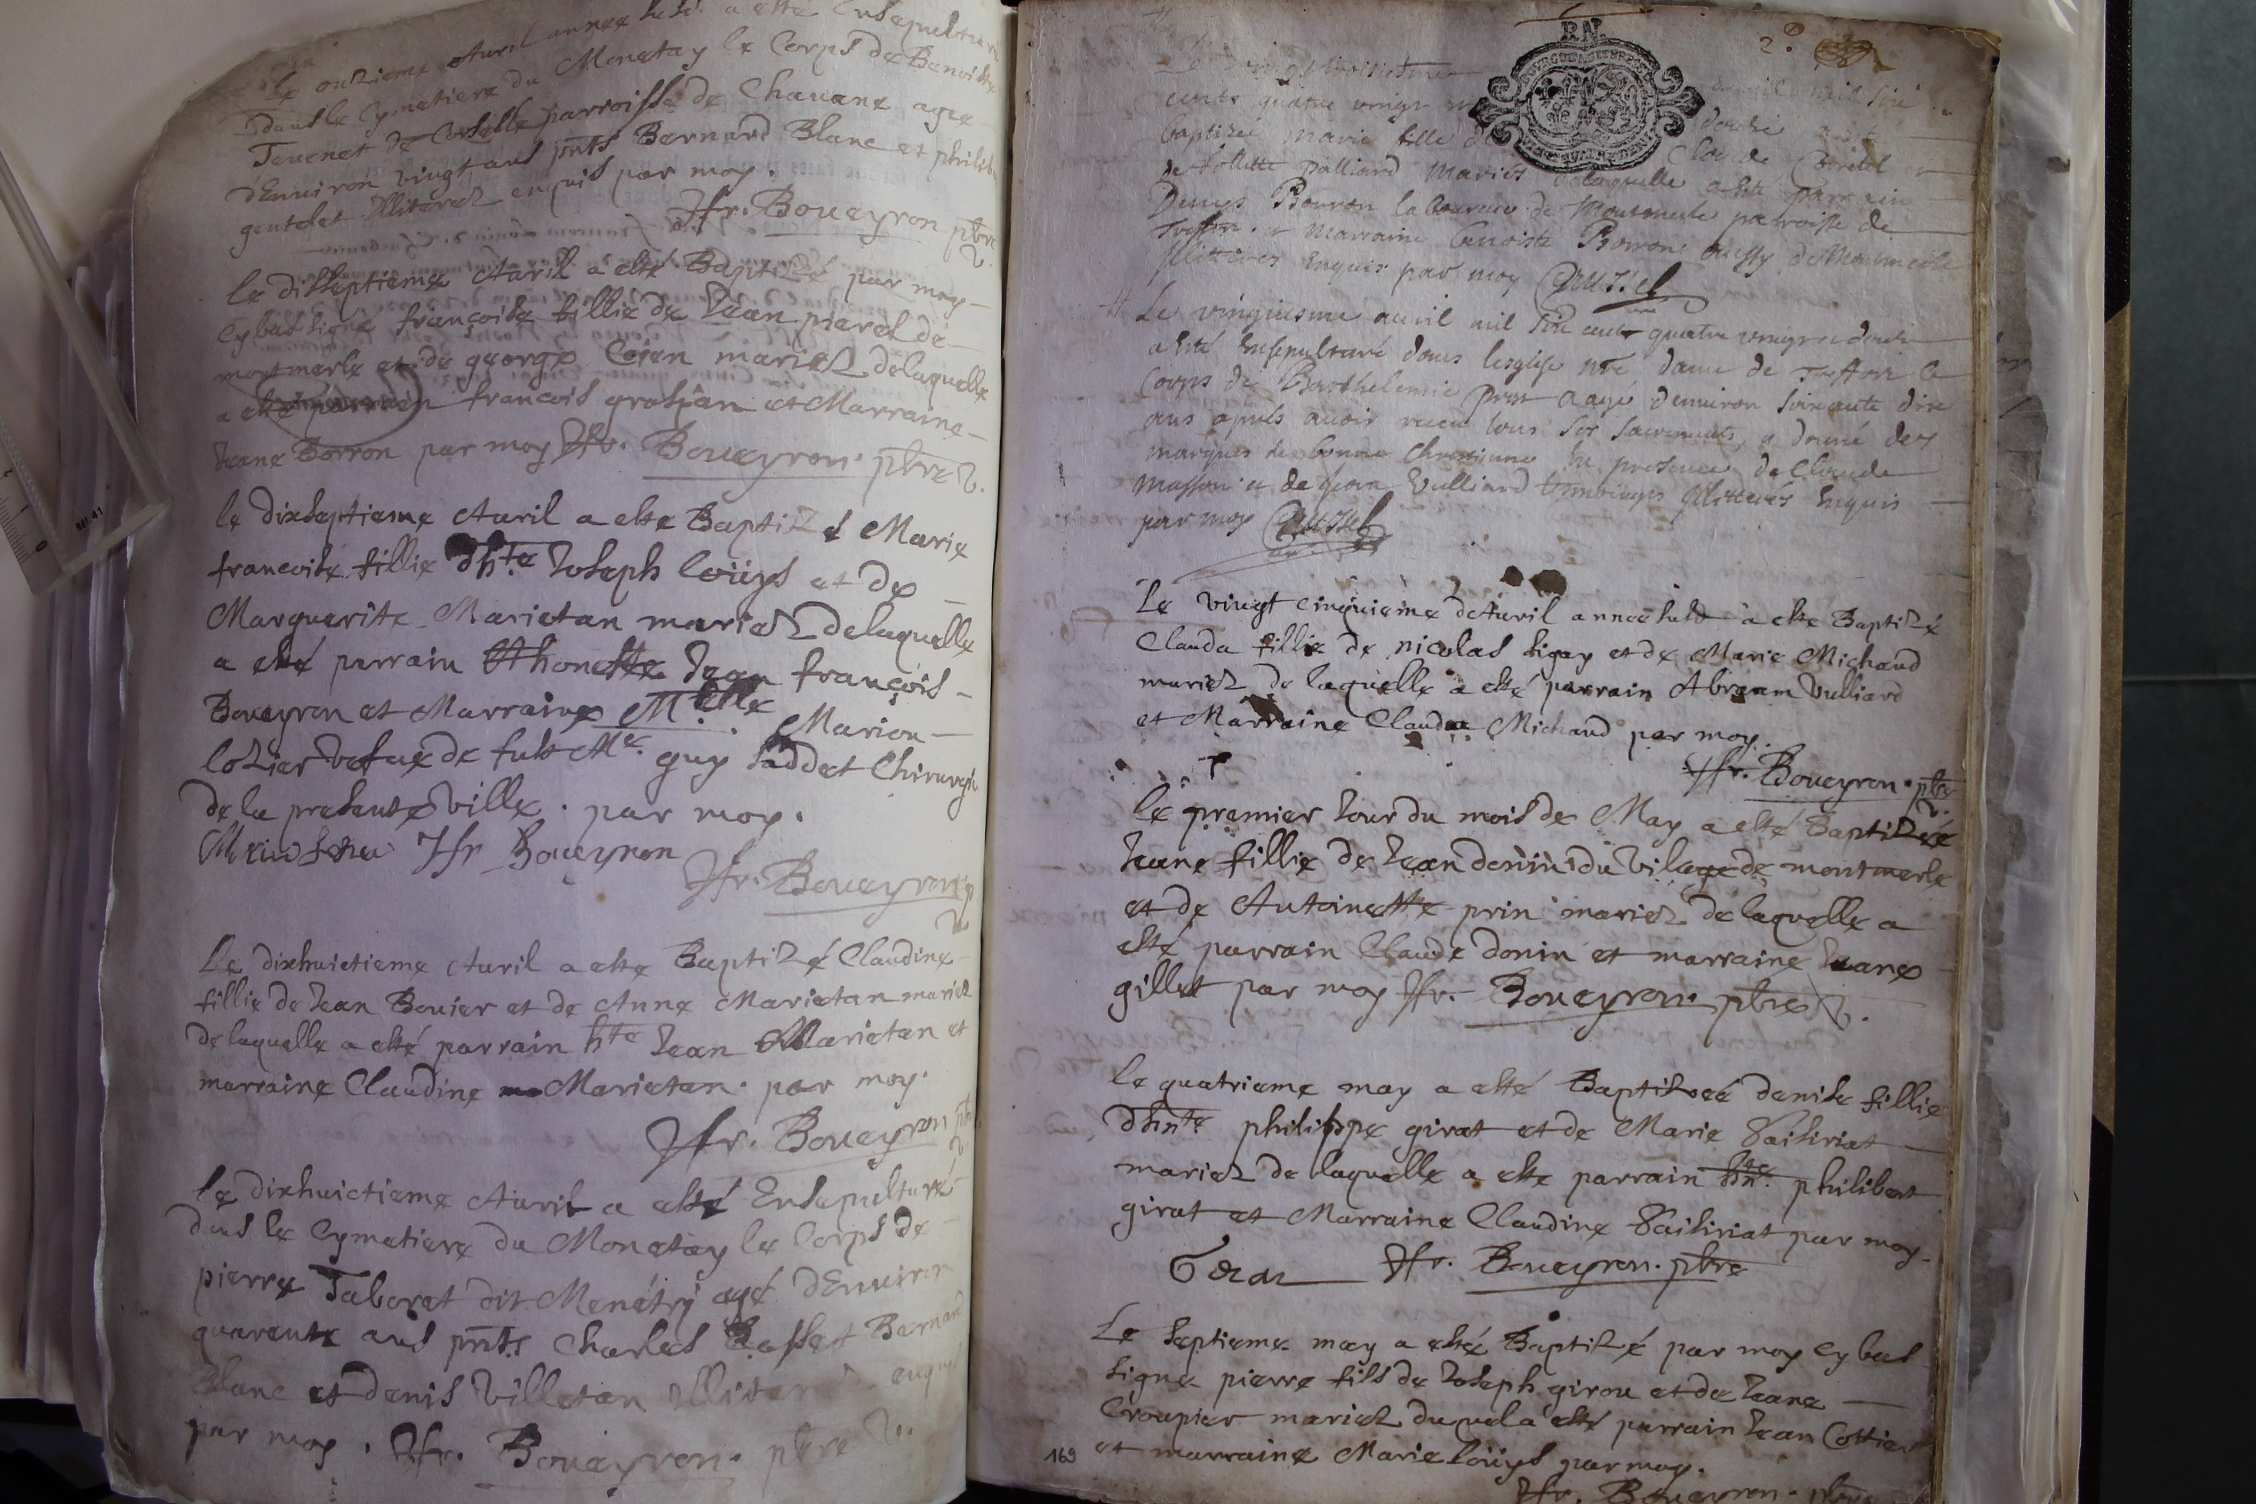 Le onzieme Avril annee susd. a esté Ensepulturé
dans le Cymetiere du Monetay le Corps de Benoiste
Tevenet de Corselle parroisse de Chavane agee
d'Environ vingt ans pnts Bernard Blanc et philib
gentelet Illiterez enquis par moy.
Jfr. Boueyron ptre
le disseptieme Avril a esté Baptizé par moy
cybas signé françoise fillie de Jean pierel de
montmerle et de george Cojan mariez delaquelle
a esté parrain francois grosjan et Marraine
Jeane Borron par moy Jfr. Boueyron. ptre
le dixseptieme Avril a este Baptizé Marie
francoise fillie d'hte Joseph loüys et de
Marguerite Marietan mariez delaquelle
a esté parrain Jean françois
Boueyron et Marraine Mlle Marion
lozier vefue de fut Me. guy Chirurgi
de la presente ville. par moy.
Jfr Boueyron
Jfr. Boueyron
Le dixhuictieme Avril a este Baptizé Claudine
fillie de Jean Bouier et de Anne Marietan mariez
delaquelle a esté parrain hte Jean Marietan et
marraine Claudine Marietan. par moy.
Jfr. Boueyron
le dixhuictieme Avril a esté Ensepulturé
dans le Cymetiere du Monetay le Corps de
pierre Taboret dit Menétrÿ agé d'Environ
quarente ans pnts. Charles Basset Bernard
Blanc et denis villetan Illiterez enquis
par moy. Jfr. Boueyron. ptre
R.N.
2e
cents quatre vingt
baptizée Marie fille de Claude
de Pollette Palliard Mariés delaquelle a esté parrain
Denys Borron laboureur de Montmerle parroisse de
Treffort et marraine Benoiste Borron aussy de Montmerle
illitteres enquis par moy Crussel
Le vingtiesme avril mil six cent quatre vingt et douze
a esté ensepulturé dans lesglise nre dame de Treffort le
Corps de Barthelemie Prost aagé d'environ soixante dix
ans apres avoir receu tous ses sacrements, a donné des
marques de bonne Chrestienne en presence de Claude
Masson et de Jean Vulliard temoings illitterés enquis
par moy Crussel
Le vingt cinquieme d'Avril annee susd a este Baptizé
Clauda fillie de nicolas ligay et de Marie Michaud
mariez de laquelle a esté parrain Abraam Vulliard
et Marraine Clauda Michaud par moy.
Jfr. Boueyron. ptre
le premier Jour du mois de May a esté Baptizéé
Jeane fillie de Jean donin du vilage de montmerle
et de Antoinette prin mariez de laquelle a
esté parrain Claude donin et marraine Jeane
gillet par moy Jfr. Boueyron. ptre
le quatrieme may a esté Baptizeé denise fillie
d'hnte philippe girat et de Marie Vaisiriat
mariez de laquelle a este parrain hnte. philibert
girat et Marraine Claudine Vaisiriat par moy.
Jfr. Boueyron. ptre
Le septieme may a esté Baptizé par moy cybas
signé pierre fils de Joseph girou et de Jeane
Croupier mariez duquel a esté parrain Jean Cottier
et marraine Marie loüys par moy.
Jfr. Boueyron. ptre
169